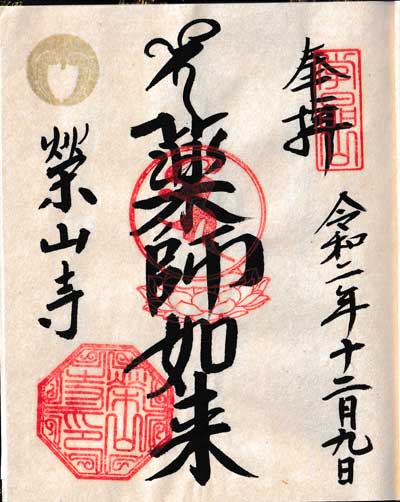 奉拝
令和二年十二月九日
薬師如来
榮山寺